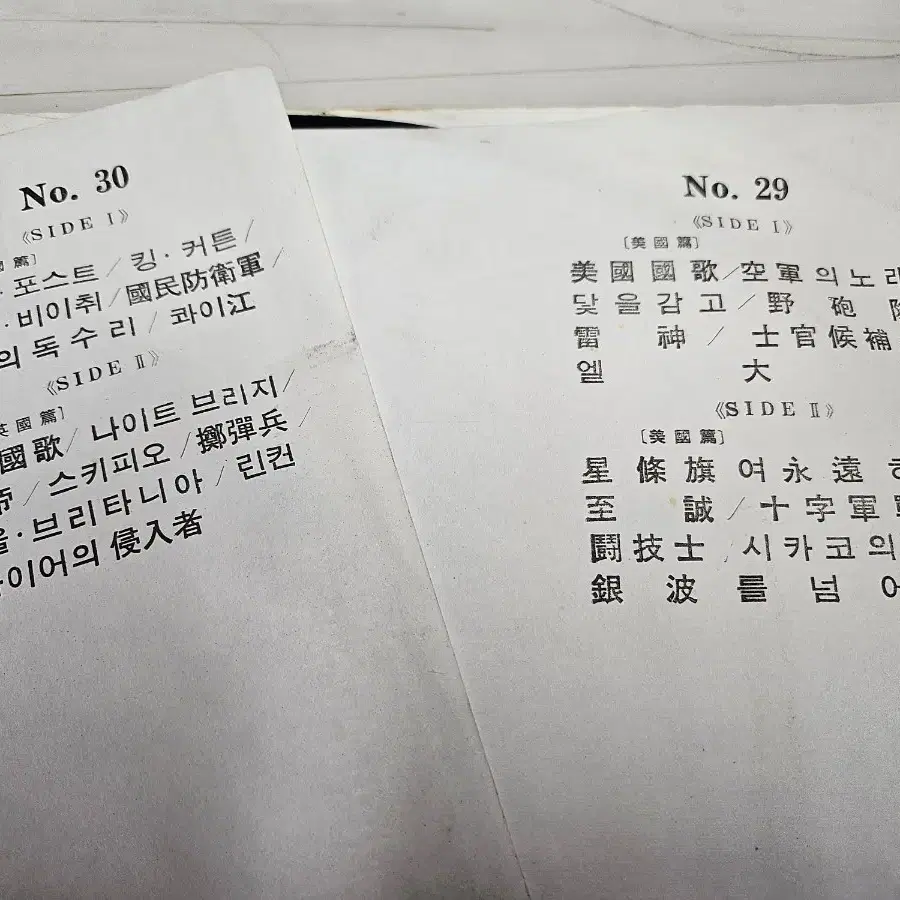 No. 30
《SIDE I》
國篇〕
포스트 / 킹·커튼 /
·비이취 / 國民防衛軍 /
의 독수리 / 콰이江
《SIDE Ⅱ》
英國篇〕
國歌 / 나이트 브리지 /
帝 / 스키피오 / 擲彈兵 /
울·브리타니아 / 린컨
이어의 侵入者
No. 29
《SIDE I》
〔美國篇〕
美國國歌 / 空軍의 노래
닻을 감고 / 野砲隊
雷神 / 士官候補
엘 大
《SIDE Ⅱ》
〔美國篇〕
星條旗여 永遠히
至誠 / 十字軍
鬪技士 / 시카코의
銀波를 넘어